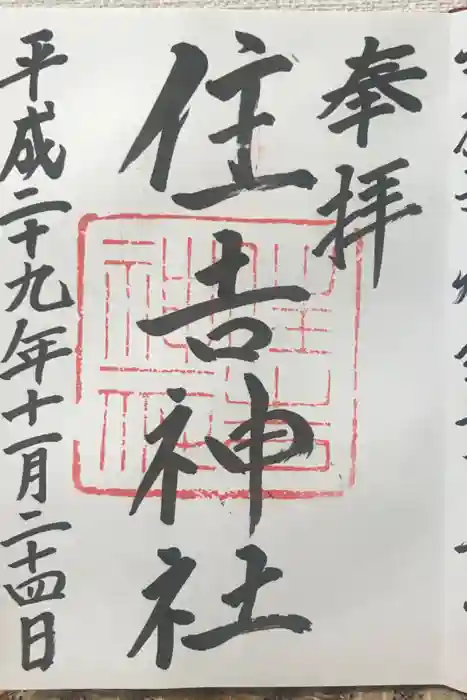 奉拝
住吉神社
平成二十九年十一月二十四日
住吉
神社